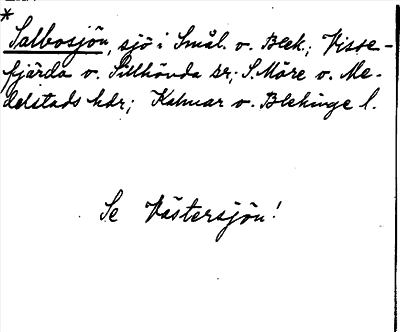 *
Salbosjön, sjö i Smål. o. Blek.; Visse-
fjärda o. Sillhövda sr; S. Möre o. Me-
delstads hdr; Kalmar o. Blekinge l.
Se Västersjön!